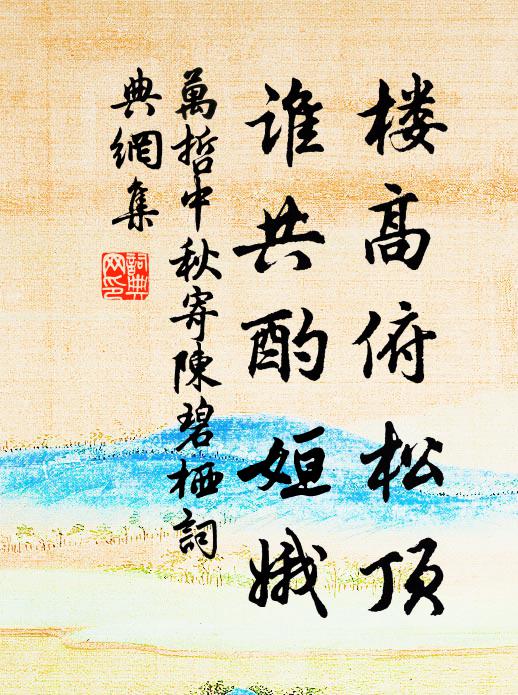 楼高俯松顶
谁共酌姮娥
萬哲中秋寄陳碧栖詞
典網集
詞典
网印